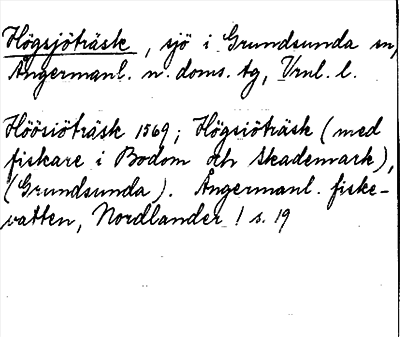 Högsjöträsk, sjö i Grundsunda sn,
Ångermanl. n. doms. tg, Vrnl. l.
Höösiöträsk 1569; Högsiöträsk (med
fiskare i Bodom och Skademark),
(Grundsunda). Ångermanl. fiske-
vatten, Nordlander 1 s. 19